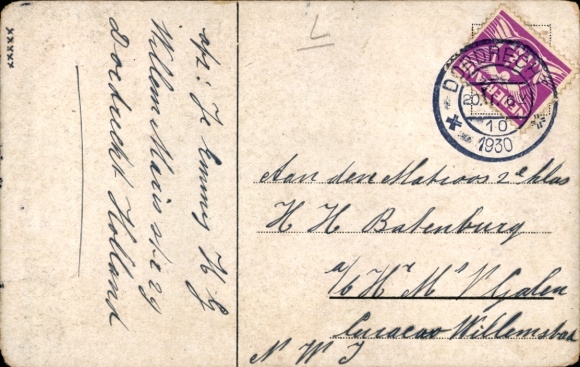 xxxxx
afz: J Emmig H G
Willem Maris str 29
Dordrecht Holland
L
DORDRECHT
20.
10
1930
NEDERLAND
Aan den Matroos 2e klas
H H Batenburg
a/b Hr Ms V Galen
Curacao Willemstad
N W I